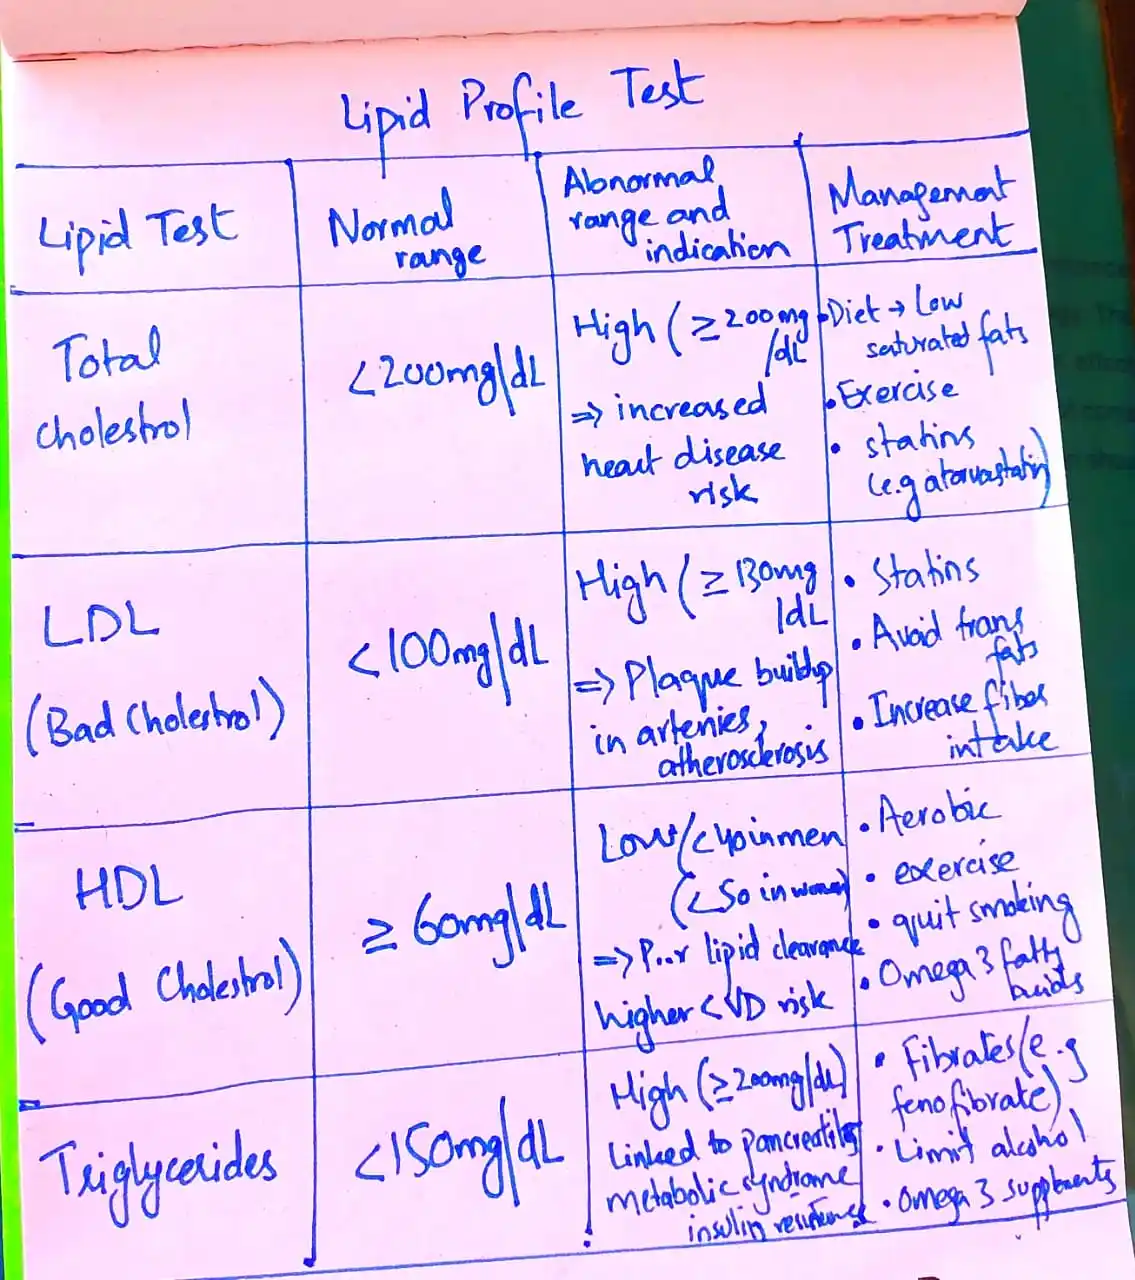 Lipid Profile Test
Lipid Test
Normal
range
Abnormal
range and
indication
Management
Treatment
Total
cholestrol
<200mg/dL
High (≥200mg
/dL
⇒ increased
heart disease
risk
• Diet → Low
saturated fats
• Exercise
• statins
(e.g atorvastatin)
LDL
(Bad Cholestrol)
<100mg/dL
High (≥130mg
/dL
⇒ Plaque buildup
in arteries,
atherosclerosis
• Statins
• Avoid trans
fats
• Increase fiber
intake
HDL
(Good Cholestrol)
≥ 60mg/dL
Low (<40 in men
(<50 in women)
⇒ Poor lipid clearance
higher CVD risk
• Aerobic
• exercise
• quit smoking
• Omega 3 fatty
acids
Triglycerides
<150mg/dL
High (≥200mg/dL)
Linked to pancreatitis
metabolic syndrome
insulin resistance
• Fibrates (e.g
fenofibrate)
• Limit alcohol
• Omega 3 supplements